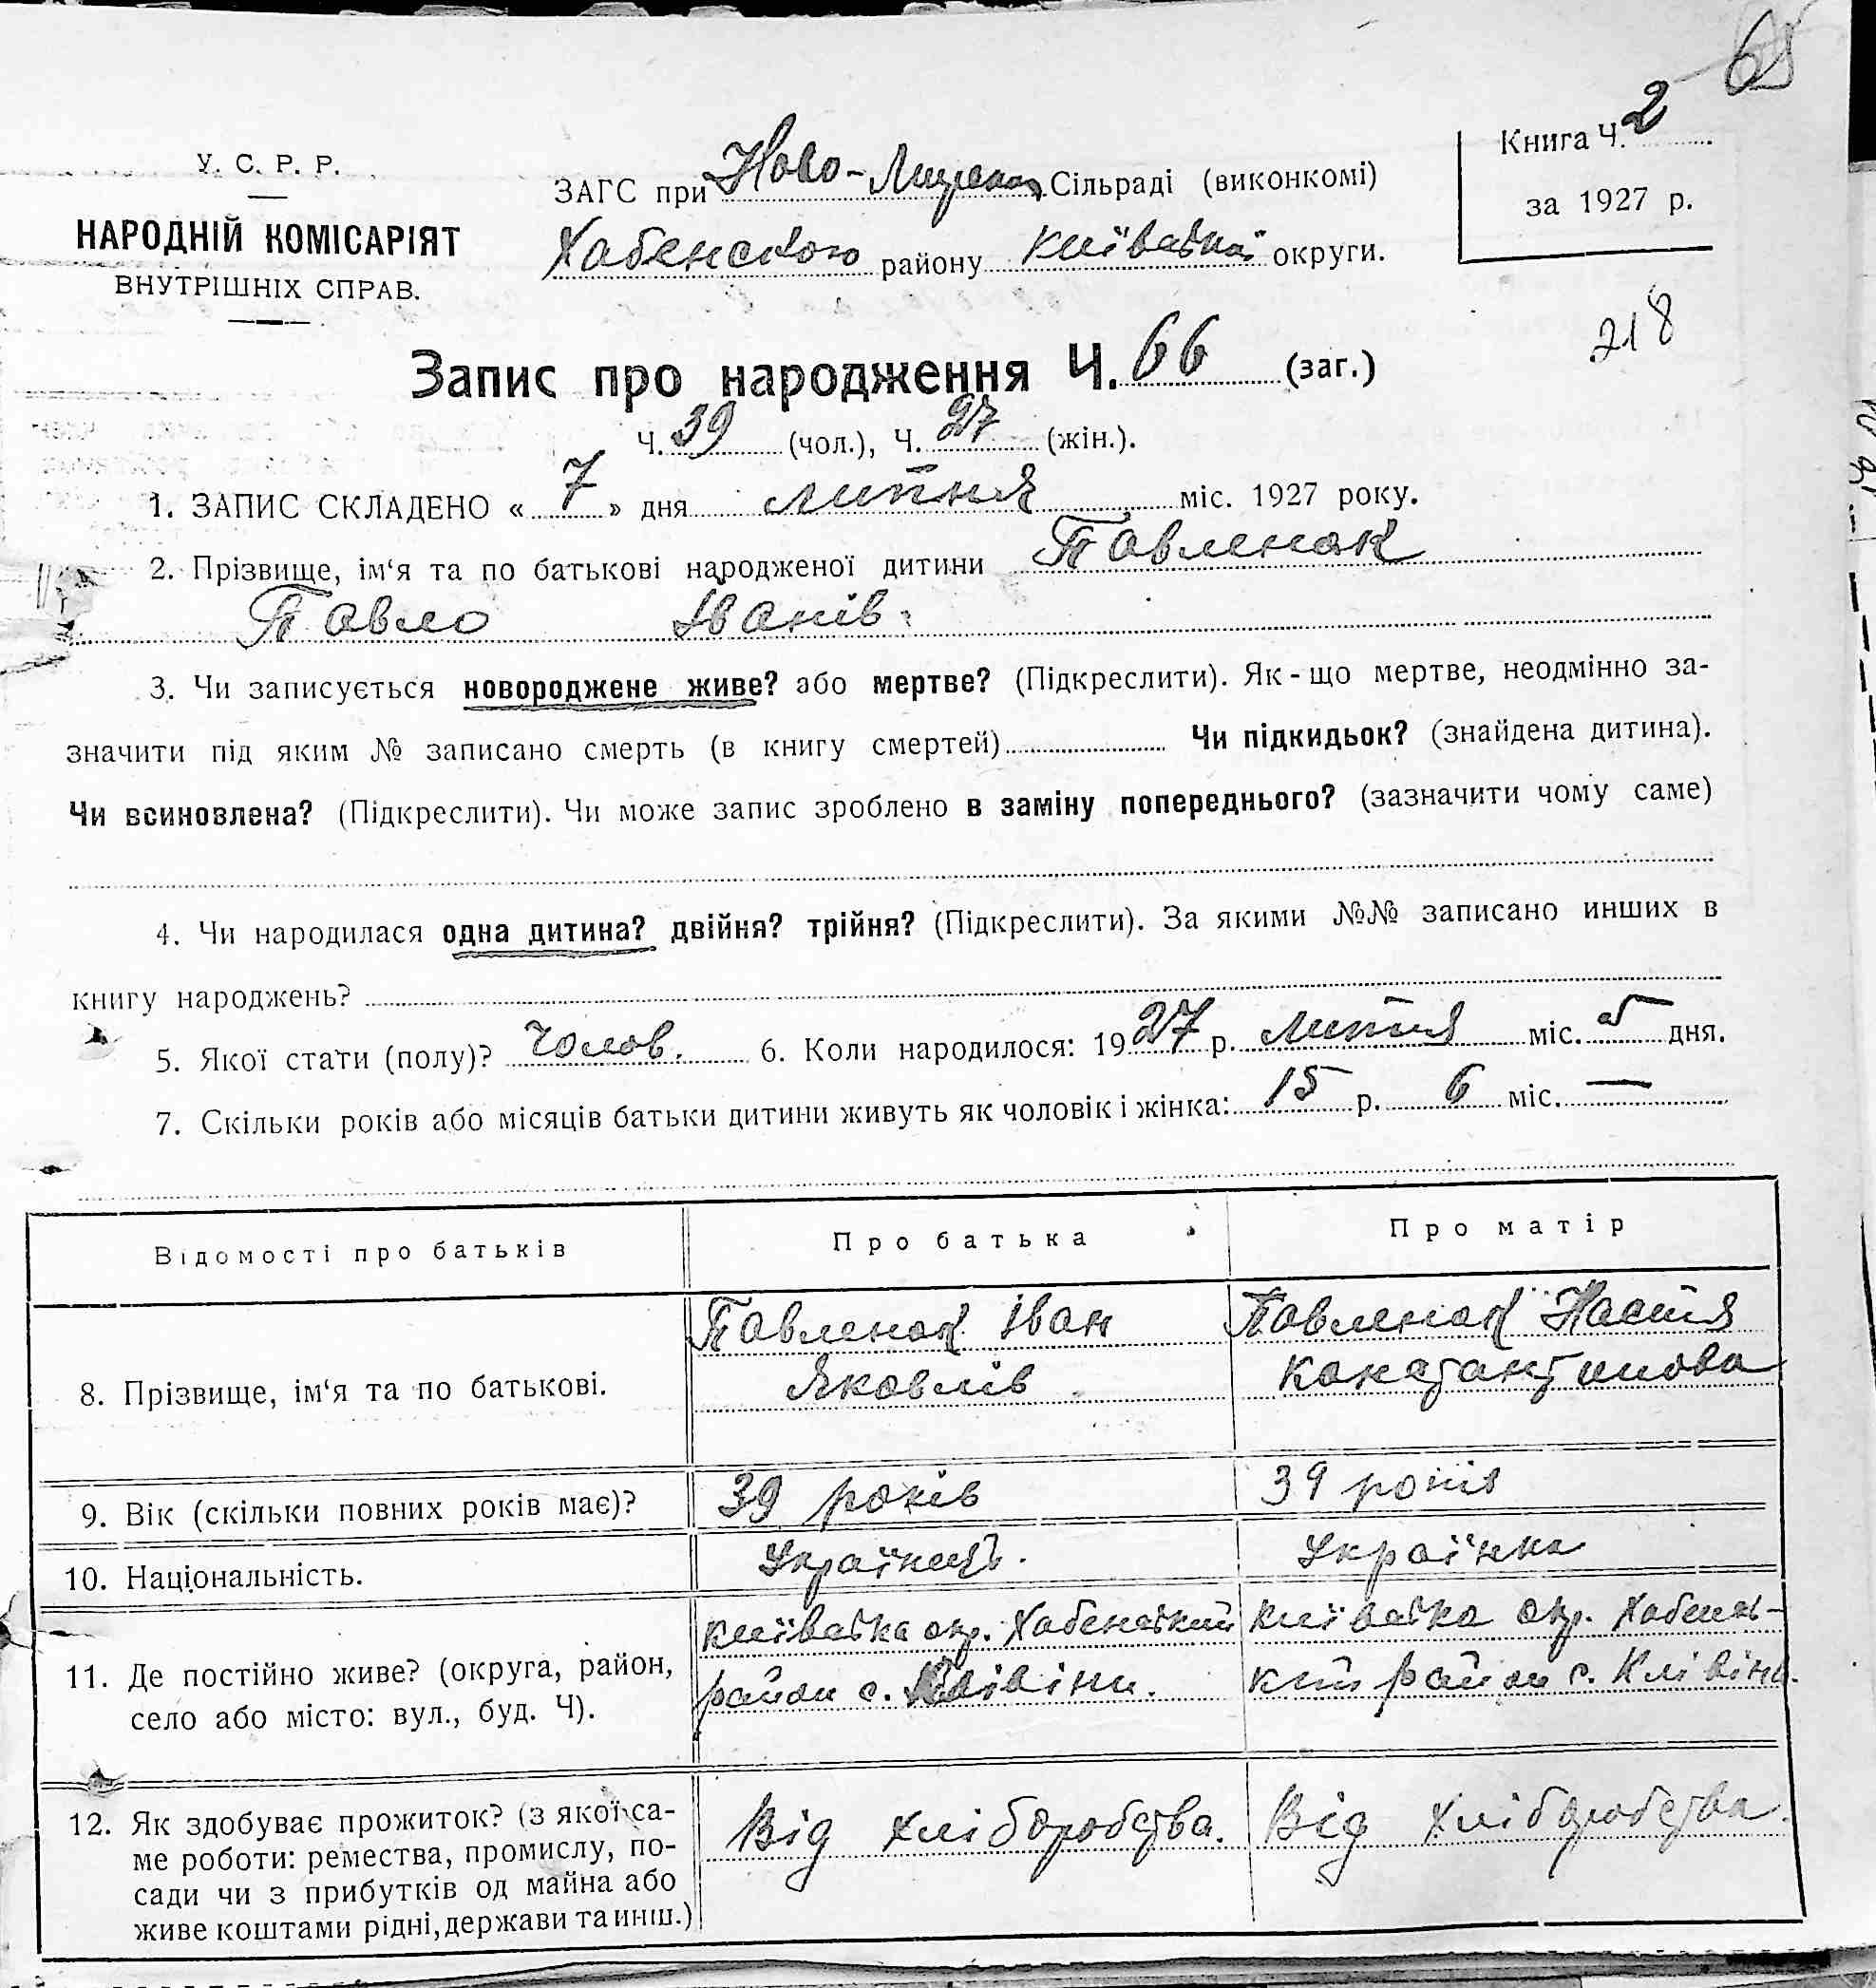 65
У. С. Р. Р.
НАРОДНІЙ КОМІСАРІЯТ
ВНУТРІШНІХ СПРАВ.
ЗАГС при Ново- Сільраді (виконкомі)
Хабенского району Київської округи.
Книга Ч. 2
за 1927 р.
218
Запис про народження Ч. 66 (заг.)
Ч. 39 (чол.), Ч. 27 (жін.).
1. ЗАПИС СКЛАДЕНО « 7 » дня липня міс. 1927 року.
2. Прізвище, ім‘я та по батькові народженої дитини Павленок
Павло Іванів.
3. Чи записується новороджене живе? або мертве? (Підкреслити). Як-що мертве, неодмінно за-
значити під яким № записано смерть (в книгу смертей) Чи підкидьок? (знайдена дитина).
Чи всиновлена? (Підкреслити). Чи може запис зроблено в заміну попереднього? (зазначити чому саме)
4. Чи народилася одна дитина? двійня? трійня? (Підкреслити). За якими №№ записано инших в
книгу народжень?
5. Якої стати (полу)? Чолов. 6. Коли народилося: 1927 р. липня міс. 5 дня.
7. Скільки років або місяців батьки дитини живуть як чоловік і жінка: 15 р. 6 міс. —
Відомості про батьків Про батька Про матір
8. Прізвище, ім‘я та по батькові.
Павленок Іван
Яковлів
Павленок Настя
Констант инова
9. Вік (скільки повних років має)? 39 років 39 років
10. Національність. Українець. Українка
11. Де постійно живе? (округа, район,
село або місто: вул., буд. Ч).
Київська окр. Хабенський
район с. Клівіни.
Київська окр. Хабенсь-
кий район с. Клівіни.
12. Як здобуває прожиток? (з якої са-
ме роботи: ремества, промислу, по-
сади чи з прибутків од майна або
живе коштами рідні, держави та инш.)
Від хліборобства. Від хліборобства.